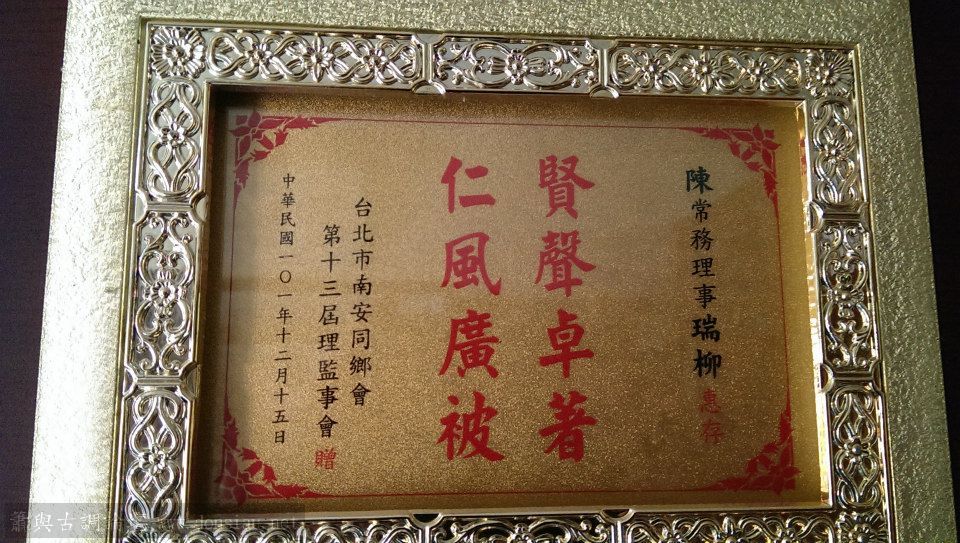 陳常務理事瑞柳惠存
賢聲卓著
仁風廣被
台北市南安同鄉會
第十三屆理監事會贈
中華民國一〇一年十二月十五日
簫與古調